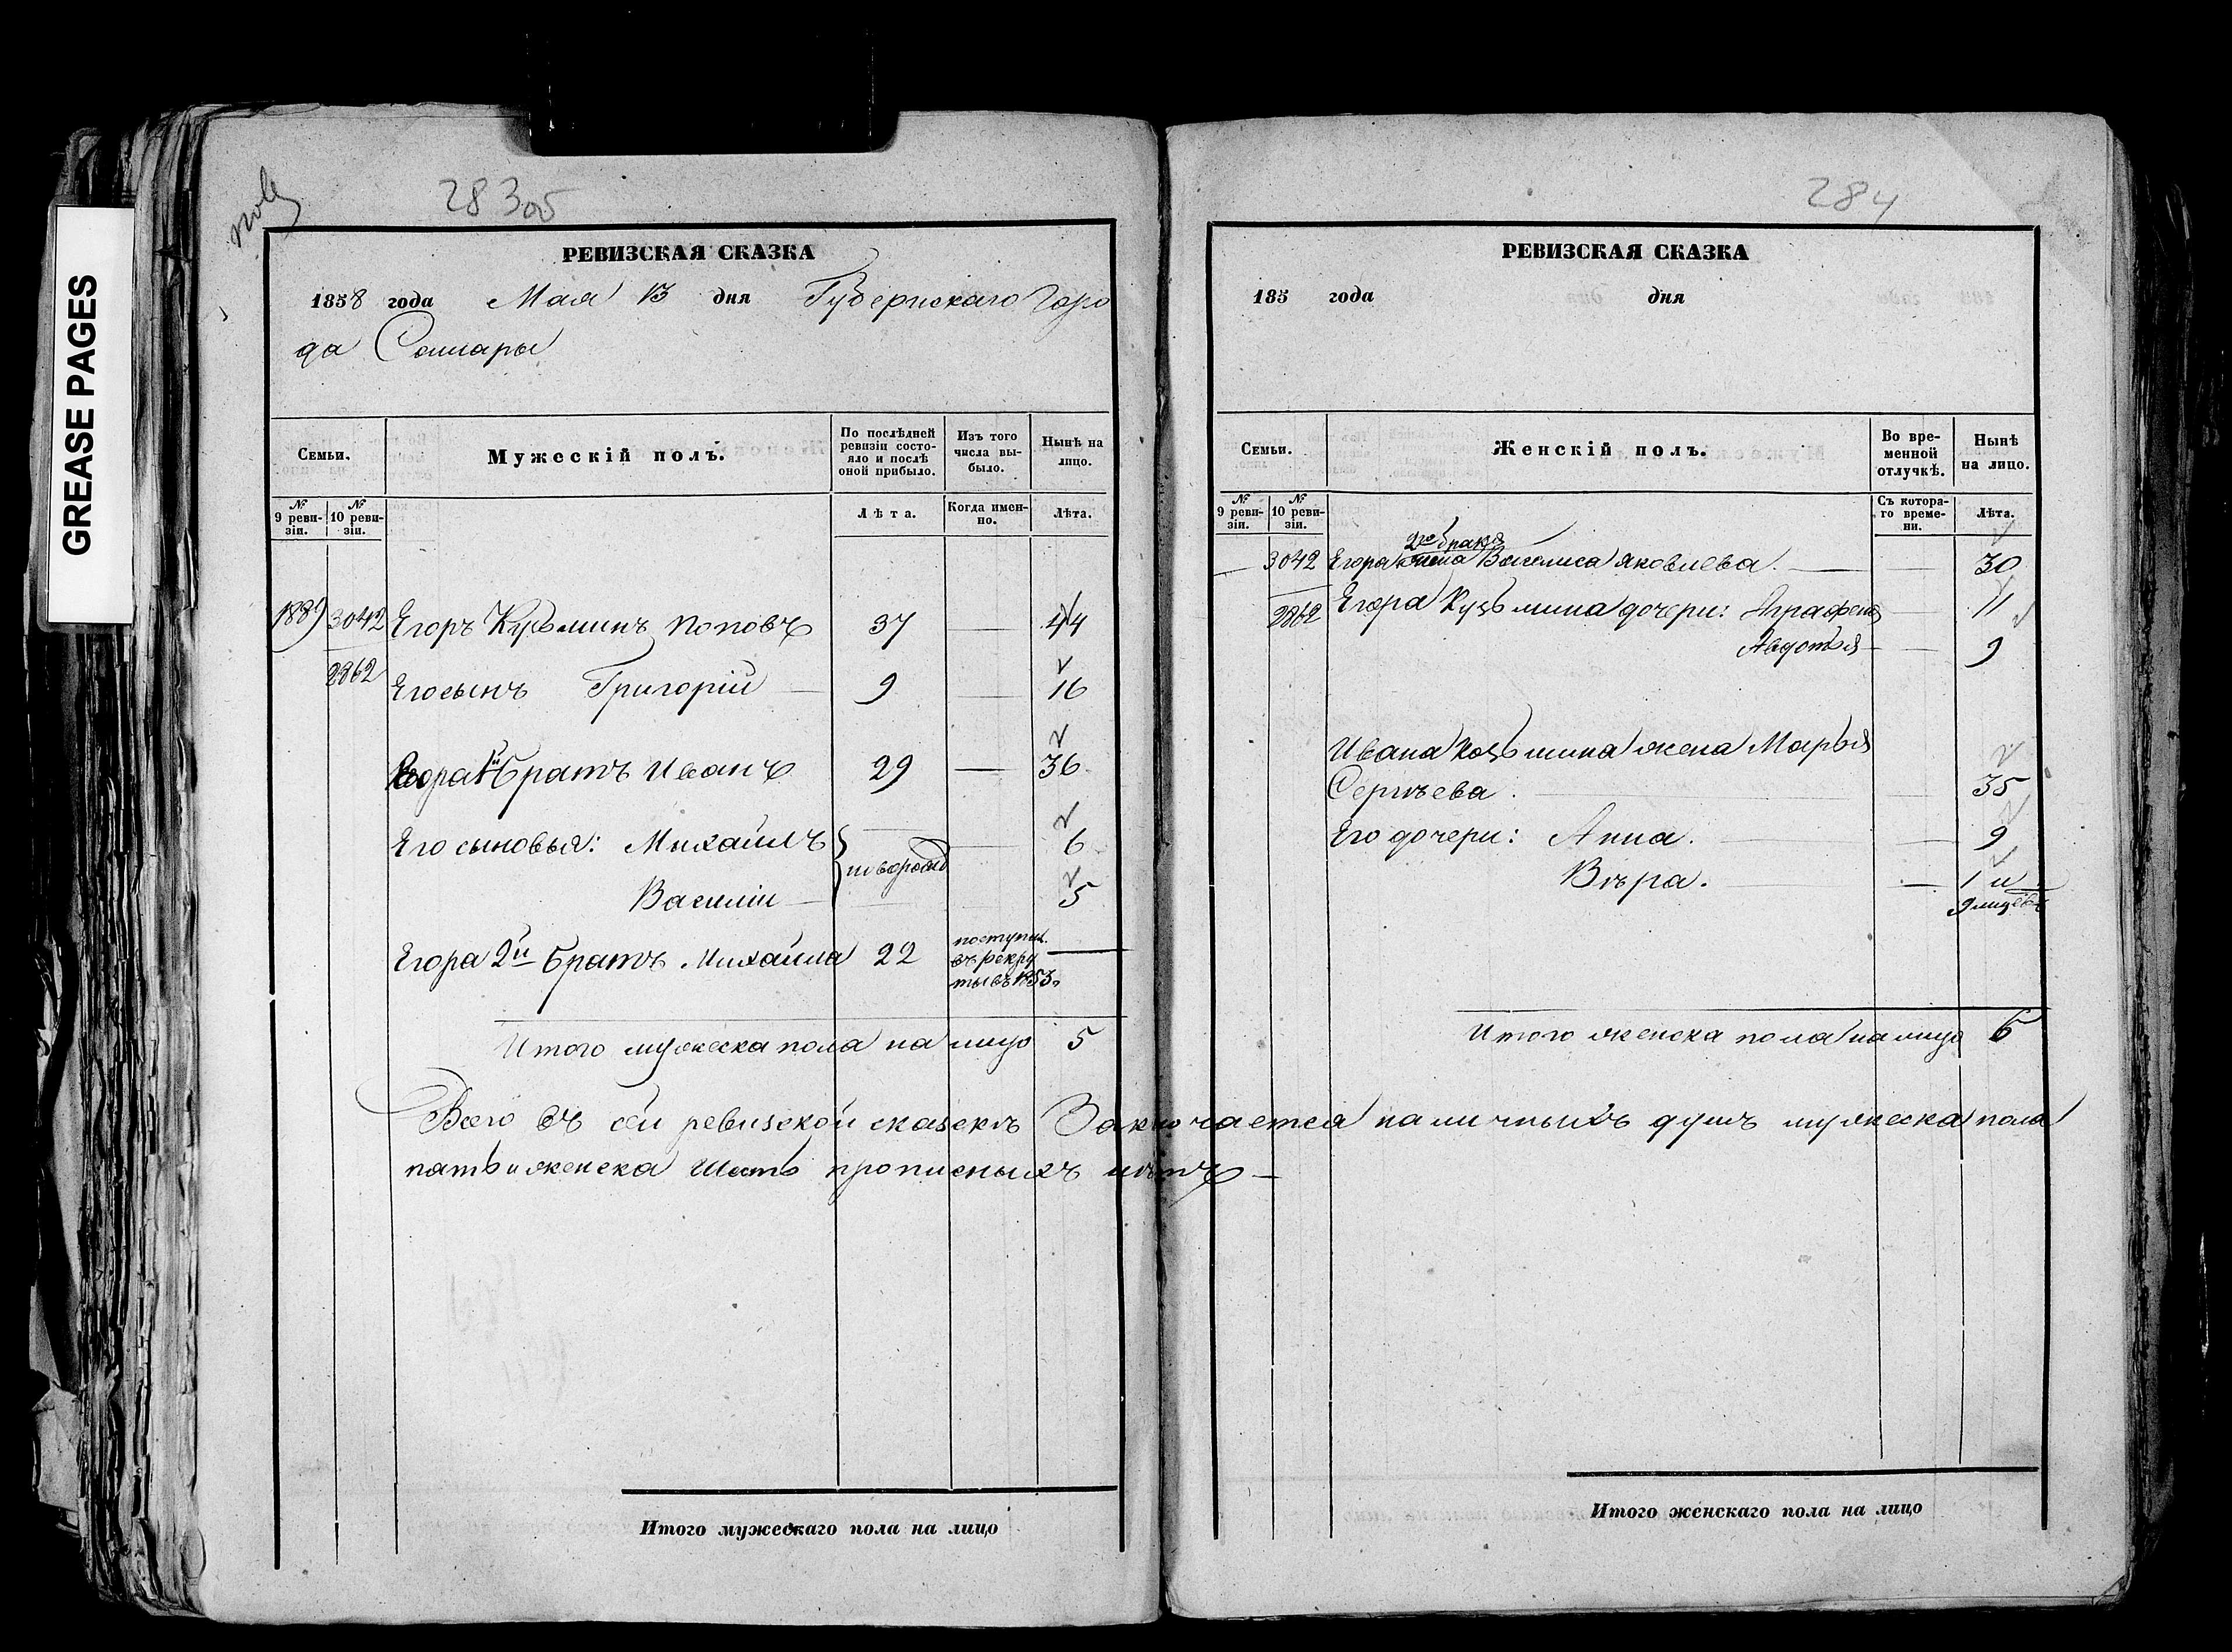 GREASE PAGES
283об
РЕВИЗСКАЯ СКАЗКА
1858 года Мая 13 дня Губернскаго Горо
да Самары
Семьи.
Мужескій полъ.
По послѣдней ревизіи состояло и послѣ оной прибыло.
Изъ того числа выбыло.
Нынѣ на лицо.
№ 9 ревизіи.
№ 10 ревизіи.
Лѣта.
Когда именно.
Лѣта.
1889 3042 Егоръ Кузьминъ Поповъ 37 — 44
2862 Его сынъ Григорій — 9 — 16
Егора 1й братъ Иванъ 29 — 36
Его сыновья: Михаилъ — 6
новорожд
Василій — 5
Егора 2й братъ Михаила 22 поступил. въ рекру ты въ 1853. —
Итого мужеска пола на лицо 5
Всего въ сей ревизской сказкѣ Заключается наличныхъ душъ мужеска пола
пять и женска шесть прописныхъ нѣтъ —
Итого мужескаго пола на лицо
284
РЕВИЗСКАЯ СКАЗКА
185 года дня
Семьи.
Женскій полъ.
Во временной отлучкѣ.
Нынѣ на лицо.
№ 9 ревизіи.
№ 10 ревизіи.
Съ котораго времени.
Лѣта.
2го брака
— 3042 Егора жена Василиса Яковлева. — 30
2862 Егора Кузьмина дочери: Аграфена — 11
Авдотья — 9
Ивана Козьмина жена Марья
Сергѣева. — 35
Его дочери: Анна. — 9
Вѣра. — 1 и
9 мѣсяцевъ
Итого женска пола на лицо 6
Итого женскаго пола на лицо